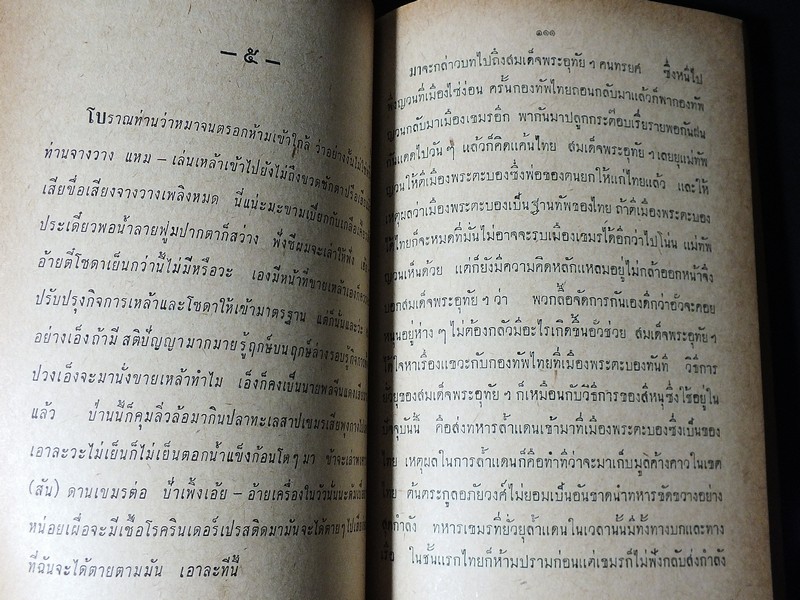 – ๕ –
โบราณท่านว่าหมาจนตรอกห้ามเข้าใกล้ ว่าอย่างงั้นไม่ใช่
ท่านจางวาง แหม – เล่นเหล้าเข้าไปยังไม่ถึงขวดชักตาปรือ
เสียชื่อเสียงจางวางเพลิงหมด นี่แน่ะมะขามเปียกกับเกลือ
ประเดี๋ยวพอน้ำลายฟูมปากตาก็สว่าง ฟังซีผมจะเล่าให้ฟัง
อ้ายตี๋โซดาเย็นกว่านี้ไม่มีหรือวะ เองมีหน้าที่ขายเหล้าเองก็
ปรับปรุงกิจการเหล้าและโซดาให้เข้ามาตรฐาน แต่ก็นั่นแหละวะ
อย่างเอ็งถ้ามี สติปัญญามากมายรู้ฤกษ์บนฤกษ์ล่างรอบรู้กิจการ
ปวงเอ็งจะมานั่งขายเหล้าทำไม เอ็งก็คงเป็นนายพลจีนแดง
แล้ว ป่านนี้ก็คุมลิ่วล้อมากินปลาทะเลสาปเขมรเลียพุงกาง
เอาละวะไม่เย็นก็ไม่เย็นตอกน้ำแข็งก้อนโต ๆ มา ข้าจะเล่า
(สัน) ดานเขมรต่อ ป้าเพ้งเอ้ย – อ้ายเครื่องในวัวนั่นน่ะต้ม
หน่อยเผื่อจะมีเชื้อโรครินเดอร์เปรสติดมามันจะได้ตาย ๆ ไป
ที่ฉันจะได้ตายตามมัน เอาละทีนี้
๑๑๑
มาจะกล่าวบทไปถึงสมเด็จพระอุทัย ฯ คนทรยศ ซึ่งหนีไป
พึ่งญวนที่เมืองไซ่ง่อน ครั้นกองทัพไทยถอนกลับมาแล้วก็พากองทัพ
ญวนกลับมาเมืองเขมรอีก พากันมาปลูกกระต๊อบเรี่ยรายพอกันฝน
กันแดดไปวัน ๆ แล้วก็คิดแค้นไทย สมเด็จพระอุทัย ฯ เลยยุแม่ทัพ
ญวนให้ตีเมืองพระตะบองซึ่งพ่อของตนยกให้แก่ไทยแล้ว และให้
เหตุผลว่าเมืองพระตะบองเป็นฐานทัพของไทย ถ้าตีเมืองพระตะบอง
ได้ไทยก็จะหมดที่มั่นไม่อาจจะรุบเมืองเขมรได้อีกว่าไปโน่น แม่ทัพ
ญวนเห็นด้วย แต่ก็ยังมีความคิดหลักแหลมอยู่ไม่กล้าออกหน้าจึง
บอกสมเด็จพระอุทัย ฯ ว่า พวกลื้อจัดการกันเองดีกว่าอั๊วจะคอย
หนุนอยู่ห่าง ๆ ไม่ต้องกลัวมีอะไรเกิดขึ้นอั๊วช่วย สมเด็จพระอุทัย ฯ
ได้ใจหาเรื่องแขวะกับกองทัพไทยที่เมืองพระตะบองทันที วิธีการ
ยั่วยุของสมเด็จพระอุทัย ฯ ก็เหมือนกับวิธีการของสีหนุซึ่งใช้อยู่ใน
ปัจจุบันนี้ คือส่งทหารล้ำแดนเข้ามาที่เมืองพระตะบองซึ่งเป็นของ
ไทย เหตุผลในการล้ำแดนก็คือทำทีว่าจะมาเก็บมูลค้างคาวในเขต
ไทย ต้นตระกูลอภัยวงศ์ไม่ยอมเป็นอันขาดนำทหารขัดขวางอย่าง
สุดกำลัง ทหารเขมรที่ยั่วยุล้ำแดนในเวลานั้นมีทั้งทางบกและทาง
เรือ ในชั้นแรกไทยก็ห้ามปรามก่อนแต่เขมรก็ไม่ฟังกลับส่งกำลัง